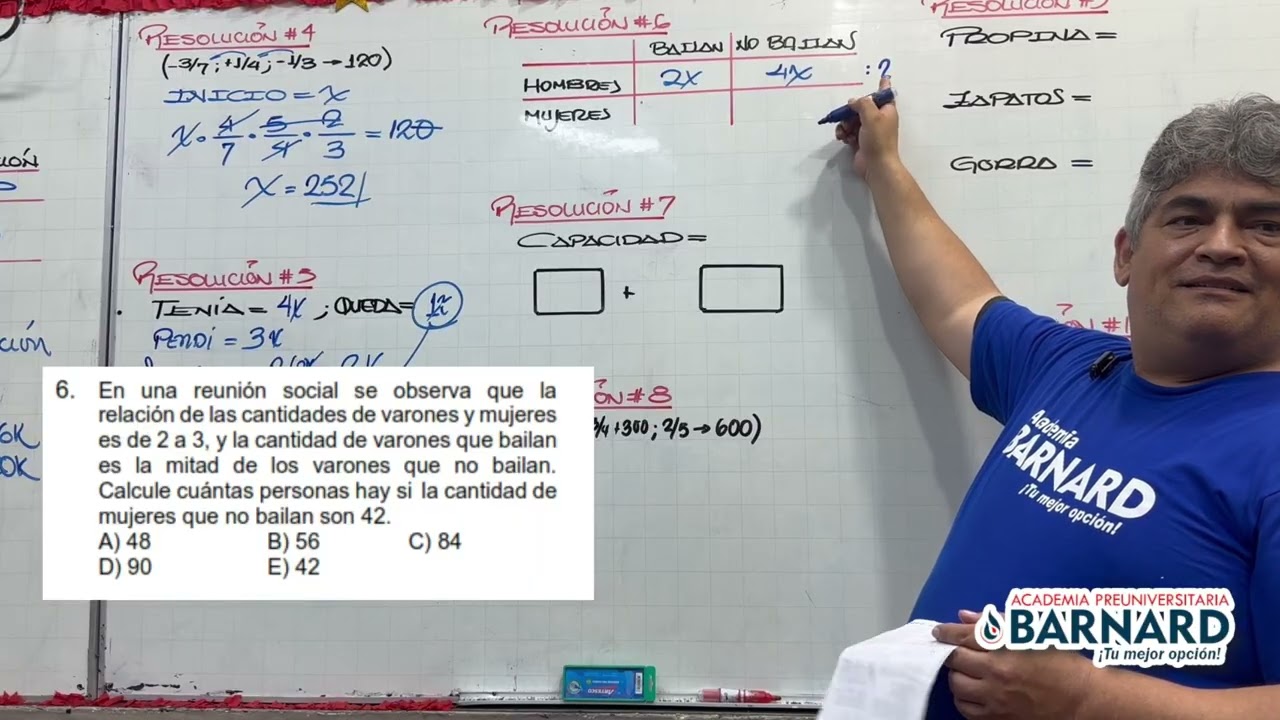 RESOLUCIÓN #4
(-3/7 ; +1/4 ; -1/3 → 120)
INICIO = x
x · 4/7 · 5/4 · 2/3 = 120
x = 252
RESOLUCIÓN #5
TENÍA = 4x ; QUEDA = 1x
PERDÍ = 3x
RESOLUCIÓN #6
BAILAN NO BAILAN
HOMBRES 2x 4x : 2
MUJERES
RESOLUCIÓN #7
CAPACIDAD =
+
ÓN #8
3/4 +300 ; 2/5 → 600)
PROPINA =
ZAPATOS =
GORRA =
6. En una reunión social se observa que la
relación de las cantidades de varones y mujeres
es de 2 a 3, y la cantidad de varones que bailan
es la mitad de los varones que no bailan.
Calcule cuántas personas hay si la cantidad de
mujeres que no bailan son 42.
A) 48 B) 56 C) 84
D) 90 E) 42
Academia
BARNARD
¡Tu mejor opción!
ACADEMIA PREUNIVERSITARIA
BARNARD
¡Tu mejor opción!